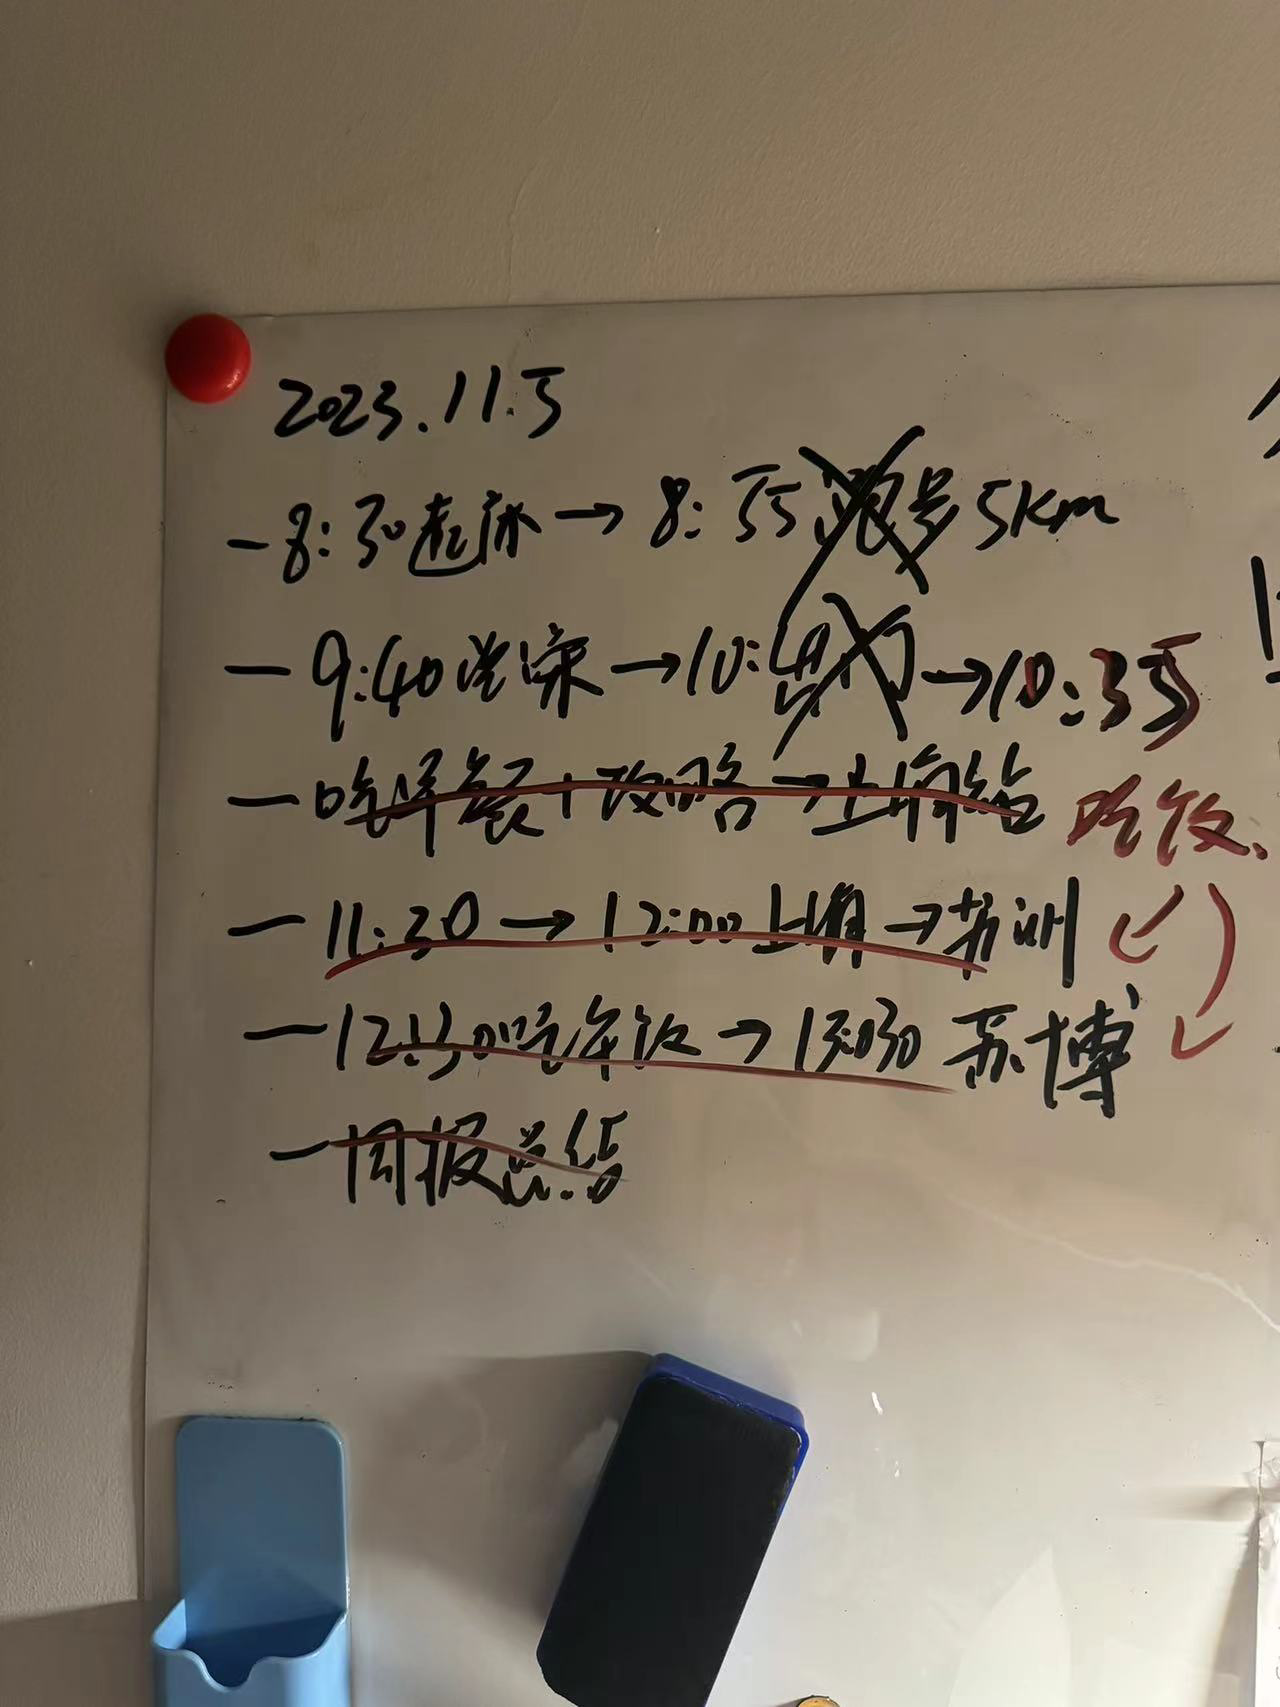 2023.11.5
-8:30起床→8:55跑步5km
-9:40洗澡→10:出门→10:35
-吃早餐+攻略→上海站 吃饭、
-11:30→12:00上海→苏州
-12:30吃午饭→13:30苏博
-周报总结